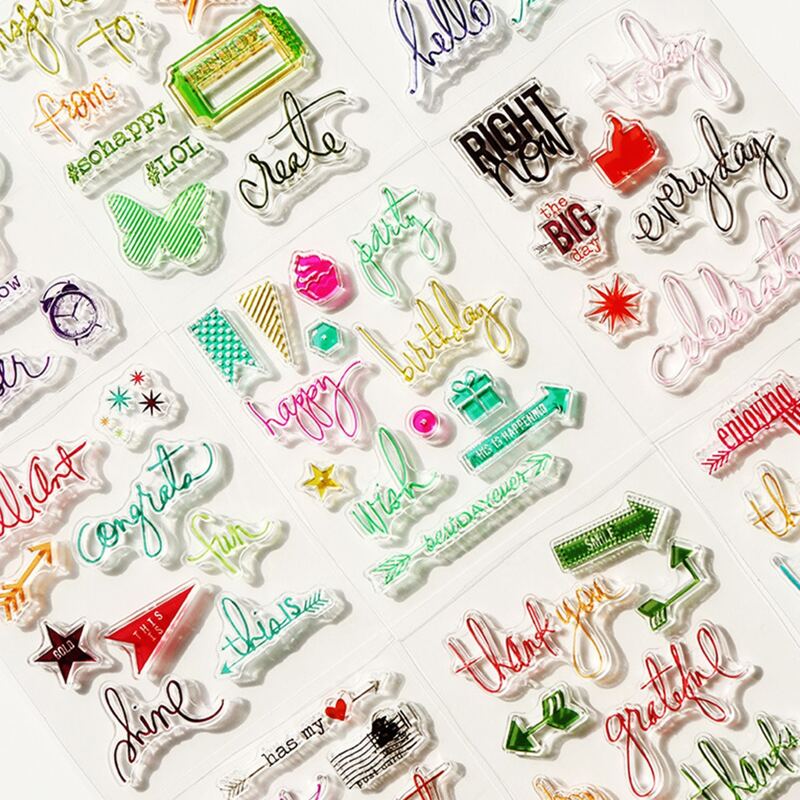 to
hello
today
from
#sohappy
#LOL
create
RIGHT
now
everyday
the
BIG
day
celebrate
party
birthday
happy
THIS IS HAPPENING
wish
best DAY ever
congrats
fun
GOLD
THIS
IS
this is
shine
has my
post card
enjoying
SMILE
thank you
grateful
thanks